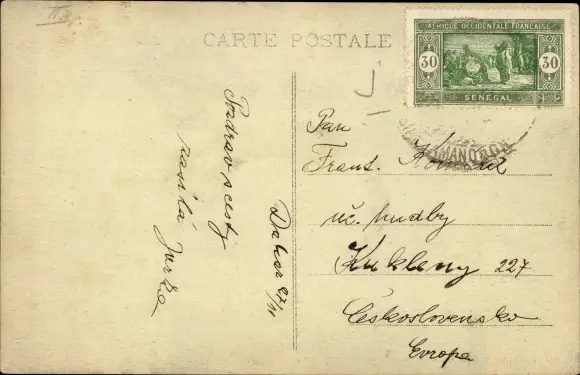 CARTE POSTALE
AFRIQUE OCCIDENTALE FRANÇAISE
30 30
SENEGAL
Pozdrav s cesty
zasílá Jurka
Dakar 27/
Pan
Frant.
uč. hudby
Kukleny 227
Československo
Evropa